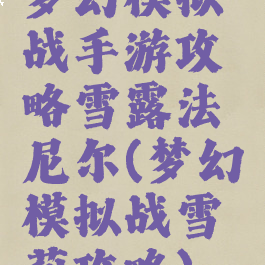 梦幻模拟
战手游攻
略雪露法
尼尔(梦幻
模拟战雪
莉攻略)